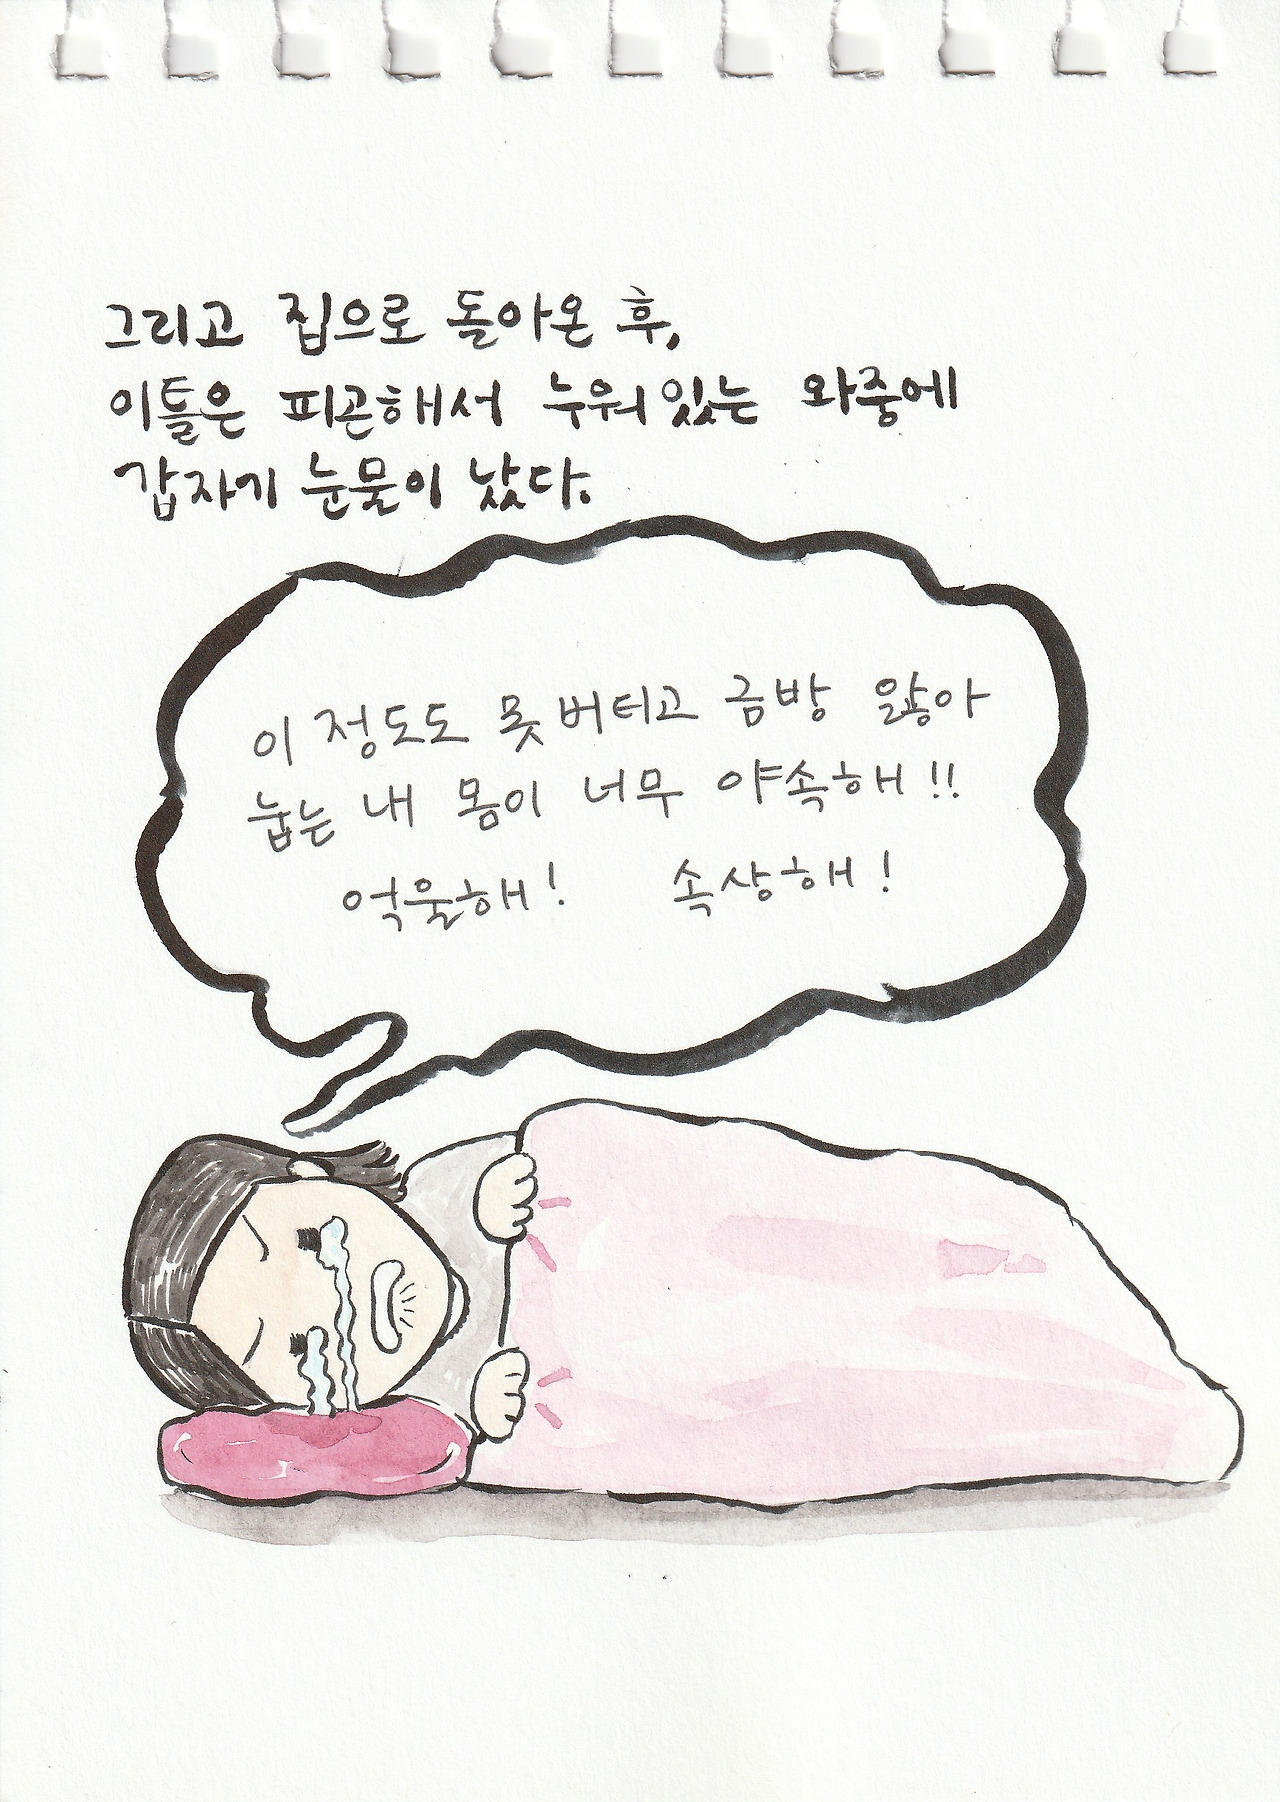 그리고 집으로 돌아온 후,
이틀은 피곤해서 누워있는 와중에
갑자기 눈물이 났다.
이 정도도 못 버티고 금방 앓아
눕는 내 몸이 너무 야속해!!
억울해! 속상해!